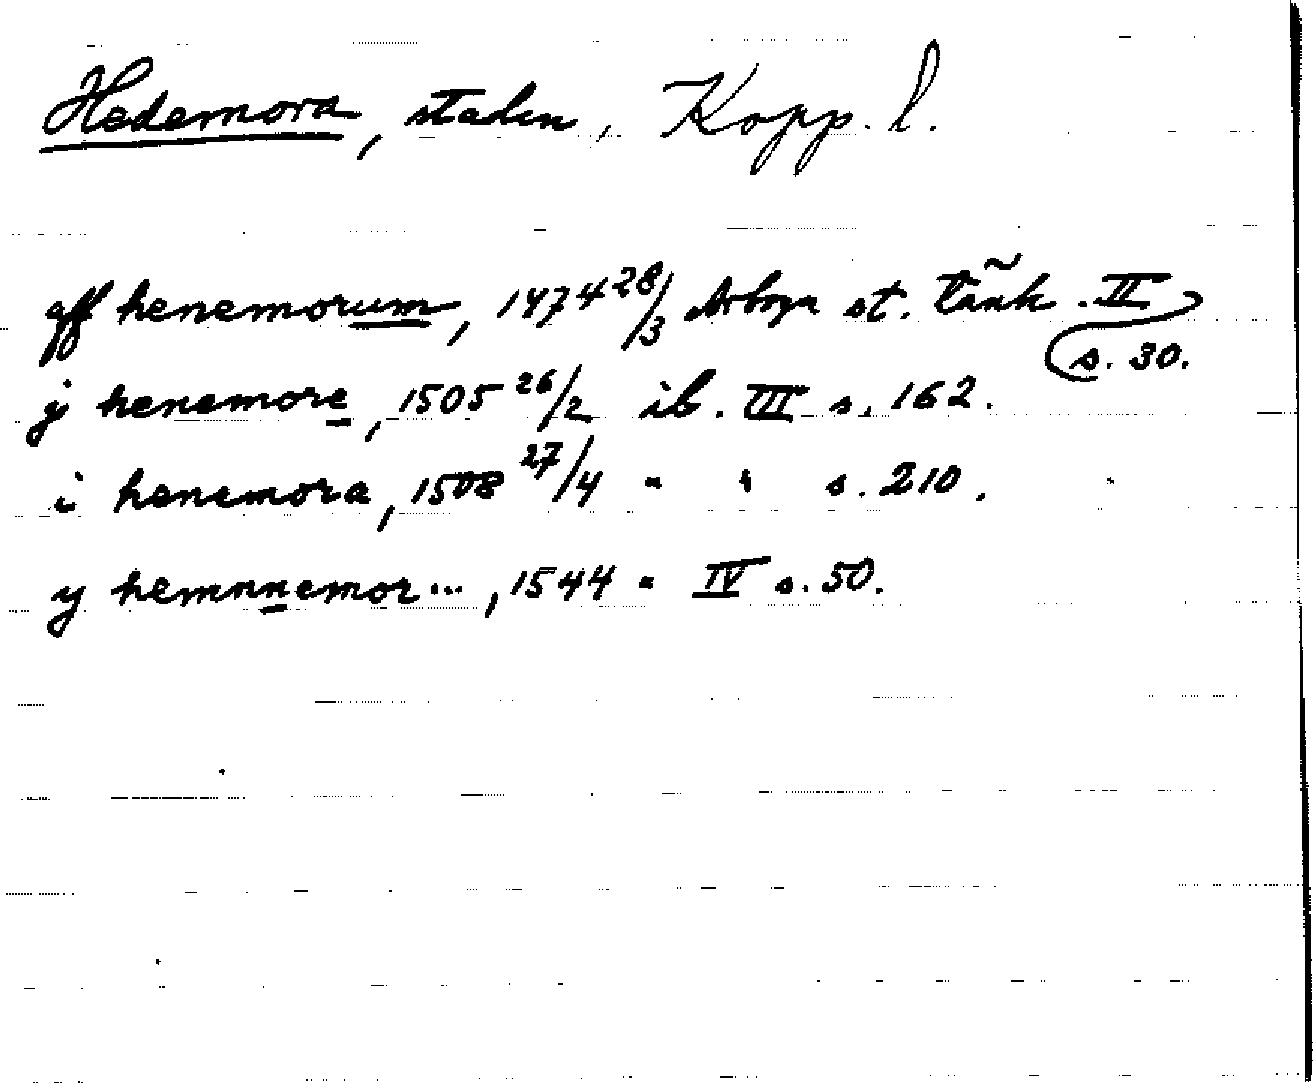 Hedemora, staden, Kopp. l.
aff henemorum, 1474 28/3 Arboga st. tänk. II
s. 30.
ÿ henemore, 1505 26/2 ib. III s. 162.
i henemora, 1508 27/4 " " s. 210.
y hemnnemor..., 1544 " IV s. 50.